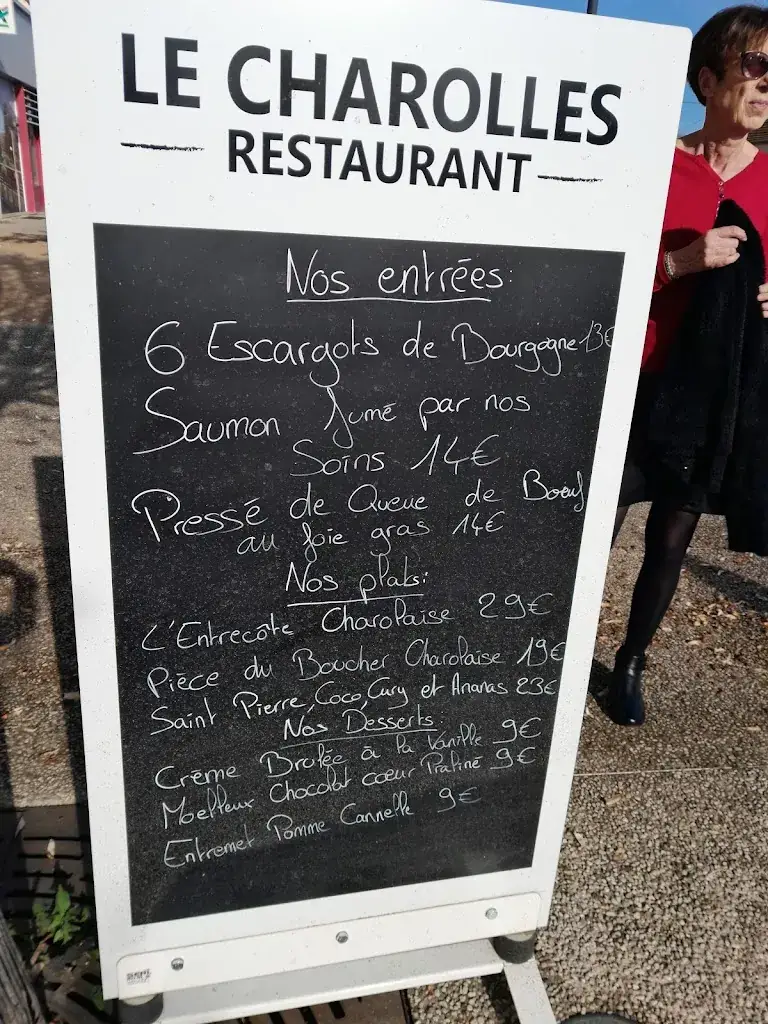 LE CHAROLLES
RESTAURANT
Nos entrées:
6 Escargots de Bourgogne 13€
Saumon fumé par nos
Soins 14€
Pressé de Queue de Boeuf
au foie gras 14€
Nos plats:
L'Entrecôte Charolaise 29€
Pièce du Boucher Charolaise 19€
Saint Pierre, Coco, Cury et Ananas 23€
Nos Desserts:
Crème Brulée à la Vanille 9€
Moelleux Chocolat coeur Praliné 9€
Entremet Pomme Cannelle 9€